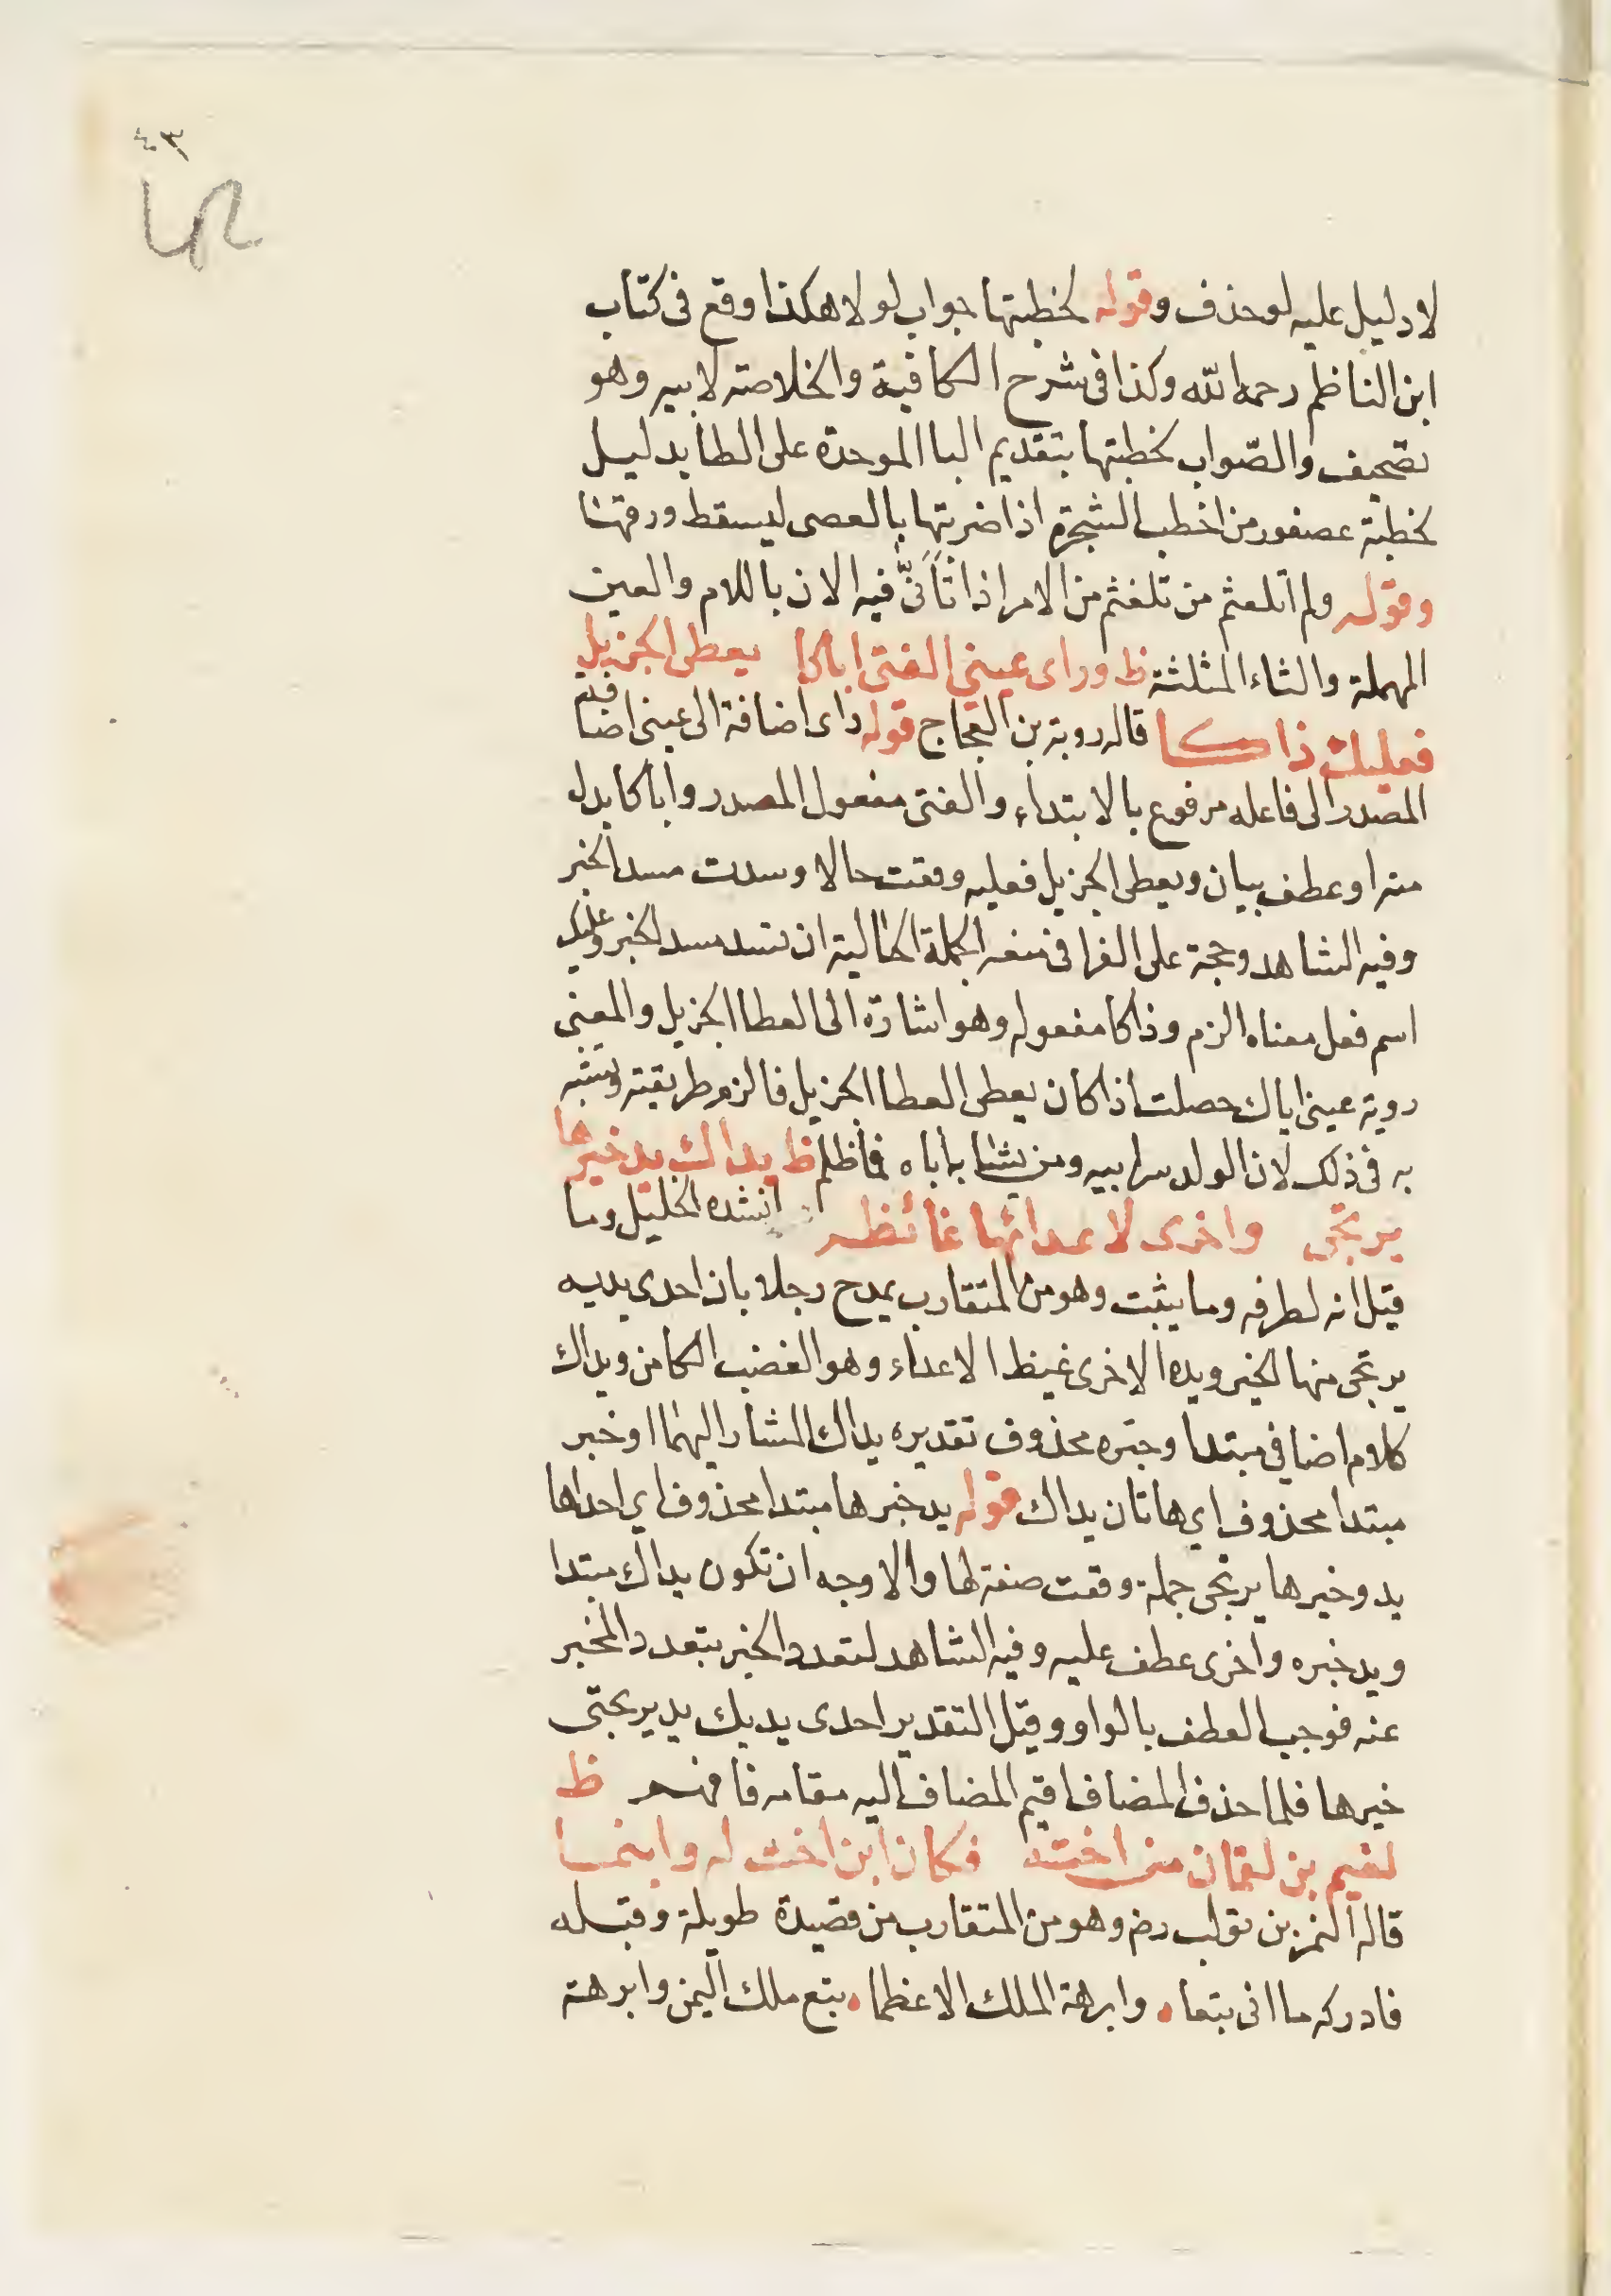 ٤٣
لا دليل عليه لو حذف وقوله لخطبتها جواب لولا هكذا وقع في كتاب
ابن الناظم رحمه الله وكذا في شرح الكافية والخلاصة لابيه وهو
تصحيف والصّواب لخبطتها بتقديم البا الموحدة على الطا بدليل
كخطبة عصفور من اخطب الشجرة اذا ضربتها بالعصى ليسقط ورقها
وقوله ولم اتلعثم من تلعثم من الامر اذا تأنّى فيه الان باللام والعين
المهملة والثاء المثلثة ظ وراى عيني الفتى اباكا يعطى الجزيل
فعليك ذاكا قاله روبة بن العجاج قوله راى اضافة الى عينى اضافة
المصدر الى فاعله مرفوع بالابتداء والفتى مفعول المصدر واباكا بدل
منه او عطف بيان ويعطى الجزيل فعليه وقعت حالا وسدت مسد الخبر
وفيه الشاهد وحجة على الفرا في منعه الجملة الحالية ان تسد مسد الخبر وعليك
اسم فعل معناه الزم وذاكا مفعوله وهو اشارة الى العطا الجزيل والمعنى
روية عينى اباك حصلت اذا كان يعطى العطا الجزيل فالزم طريقته وتشبه
به في ذلك لان الولد سر ابيه ومن يشابه اباه فما ظلم ظ يداك يد خيرها
يرتجى واخرى لاعدائها غائظه انشده الخليل وما
قيل انه لطرفه وما يثبت وهو من المتقارب يمدح رجلا بان احدى يديه
يرتجى منها الخير ويده الاخرى غيظ الاعداء وهو الغضب الكامن ويداك
كلام اضافى مبتدا وخبره محذوف تقديره يداك المشار اليهما او خبر
مبتدا محذوف اي هاتان يداك قوله يد خبرها مبتدا محذوف اي احداها
يد وخيرها يرتجى جملة وقعت صفة لها والاوجه ان تكون يداك مبتدا
ويد خبره واخرى عطف عليه وفيه الشاهد لتعدد الخبر بتعدد المخبر
عنه فوجب العطف بالواو وقيل التقدير احدى يديك يد يرتجى
خيرها فلما حذف المضاف اقيم المضاف اليه مقامه فافهم ظ
لقيم بن لقمان من اخته فكان ابن اخت له وابنما
قاله النمر بن تولب رضه وهو من المتقارب من قصيدة طويلة وقبله
فادركه ما اتى تبعا، وابرهة الملك الاعظما، تبع ملك اليمن وابرهة